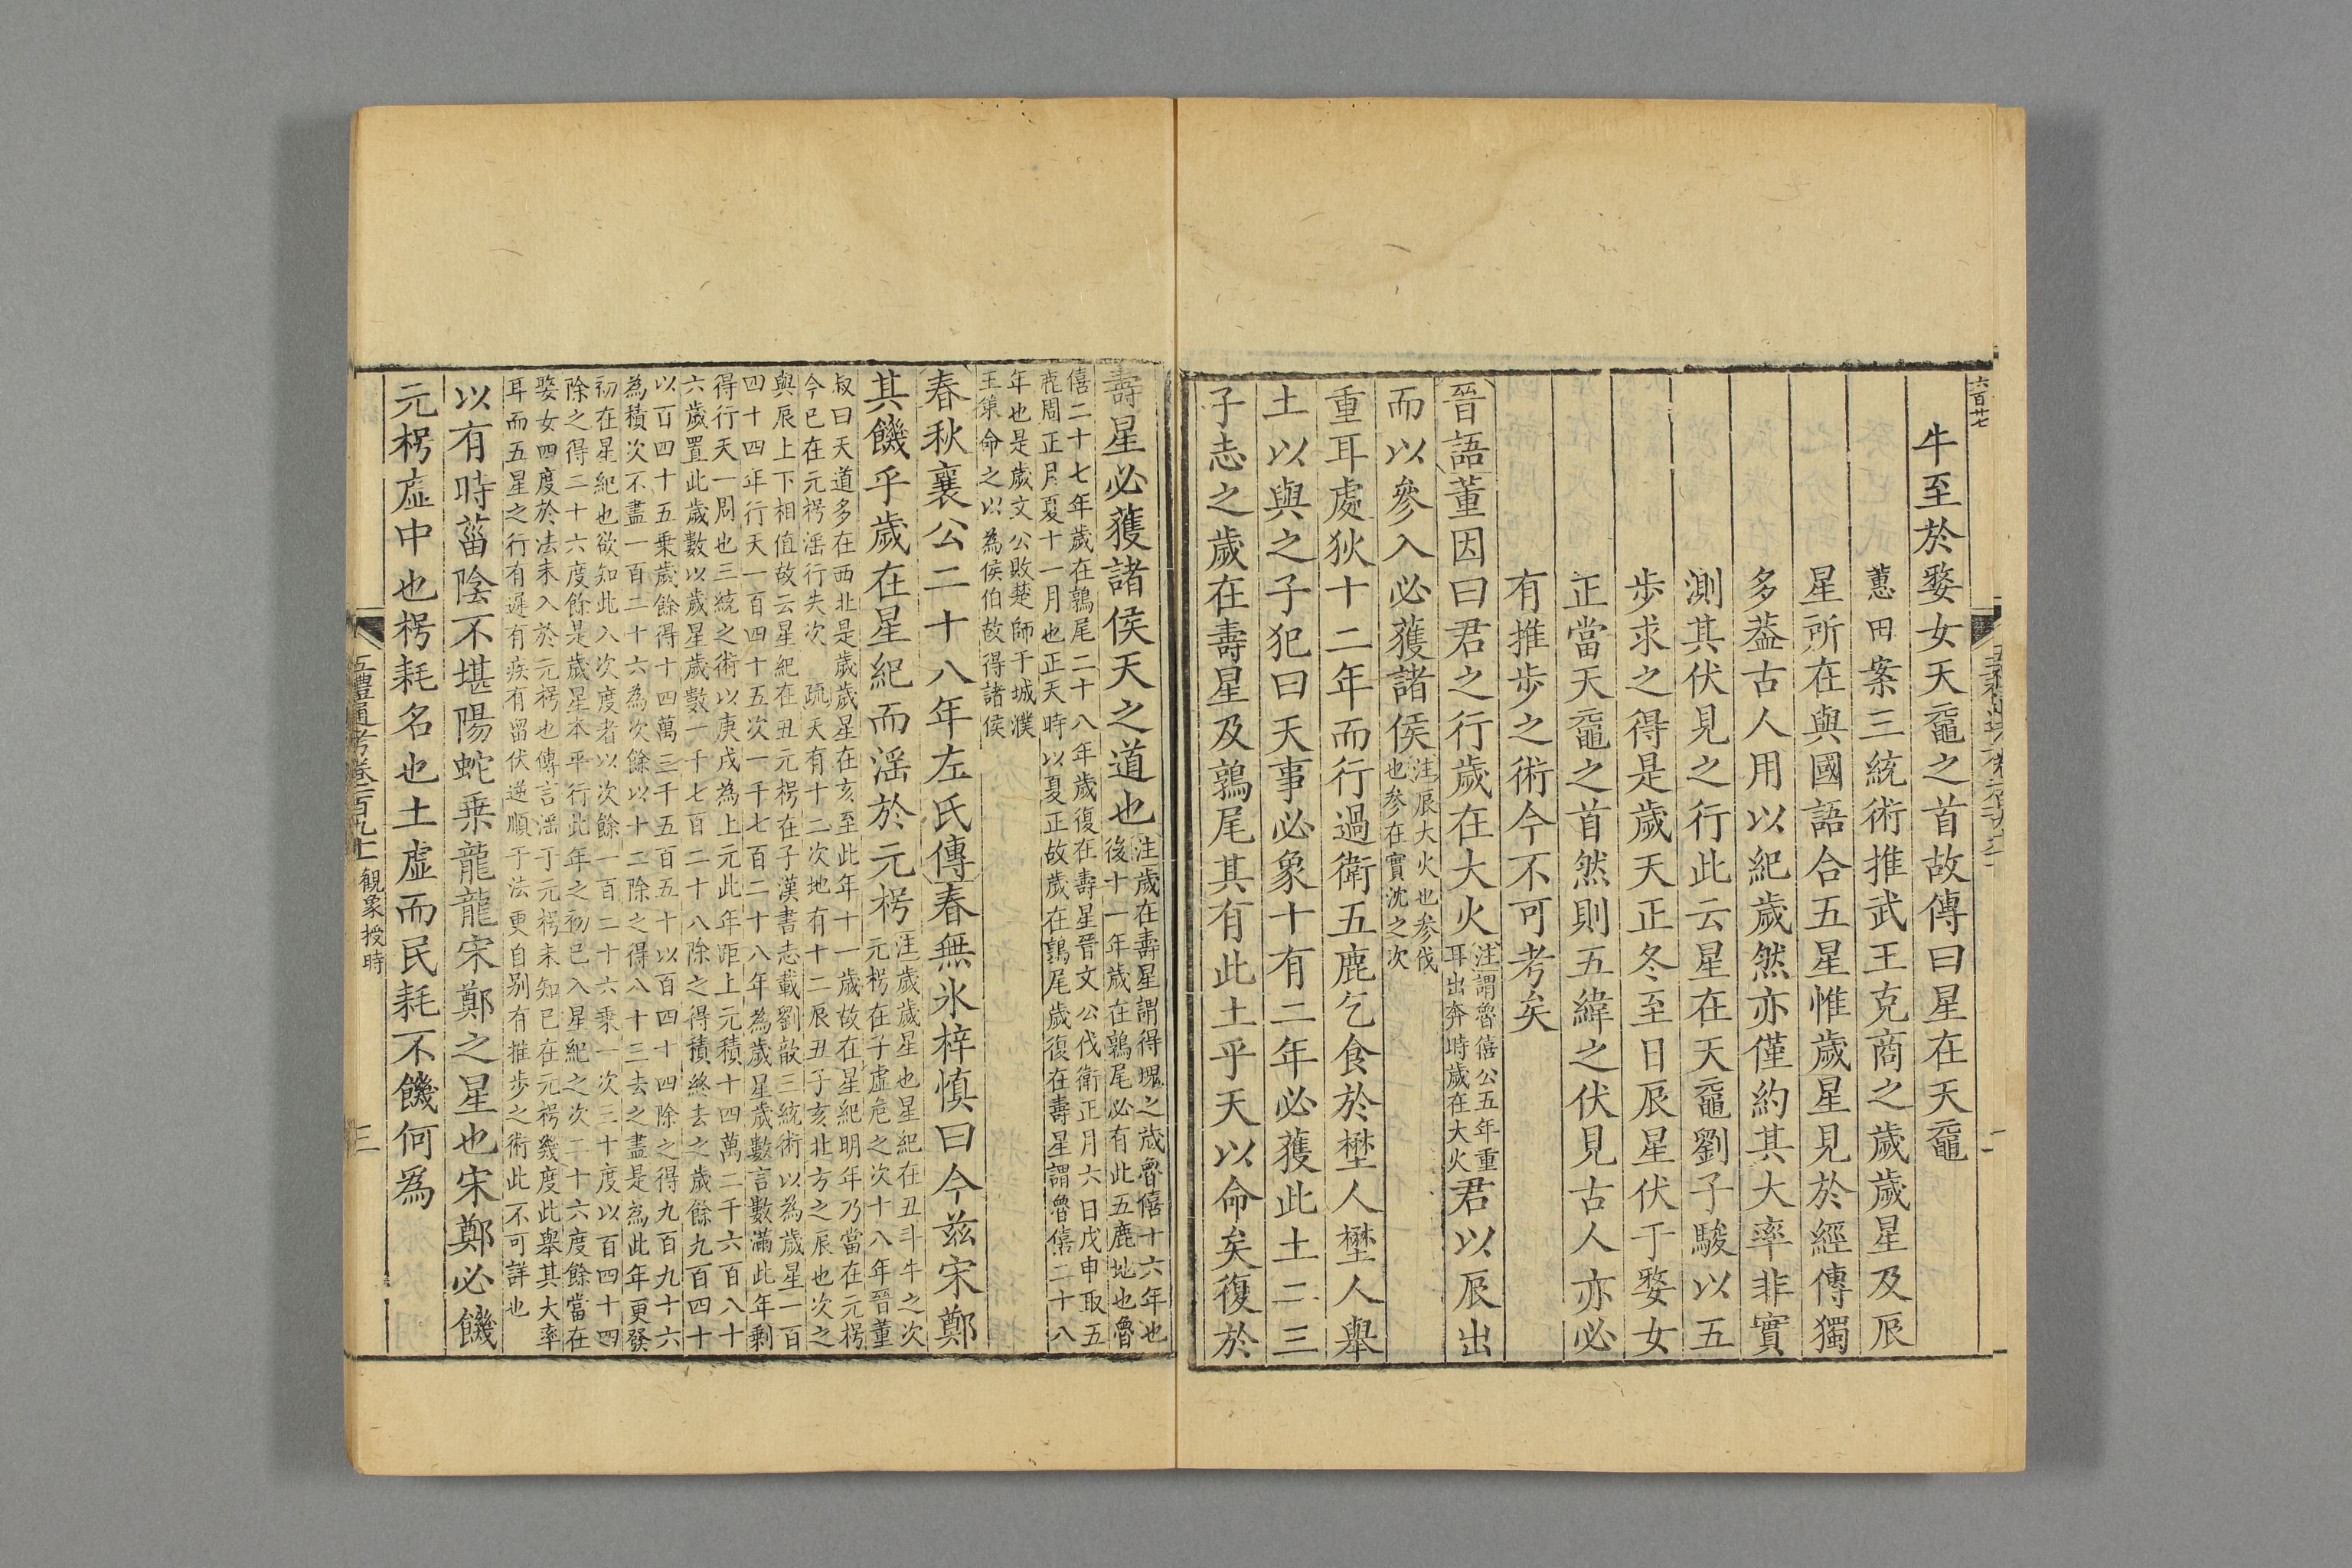 六百廿七
牛至於婺女天黿之首故傳曰星在天黿
蕙田案三統術推武王克商之歲歲星及辰
星所在與國語合五星惟歲星見於經傳獨
多葢古人用以紀歲然亦僅約其大率非實
測其伏見之行此云星在天黿劉子駿以五
步求之得是歲天正冬至日辰星伏于婺女
正當天黿之首然則五緯之伏見古人亦必
有推步之術今不可考矣
晉語董因曰君之行歲在大火注謂魯僖公五年重耳出奔時歲在大火君以辰出
而以參入必獲諸侯注辰大火也參伐也參在實沈之次
重耳處狄十二年而行過衛五鹿乞食於壄人壄人舉
土以與之子犯曰天事必象十有二年必獲此土二三
子志之歲在壽星及鶉尾其有此土乎天以命矣復於
壽星必獲諸侯天之道也注歲在壽星謂得塊之歲魯僖十六年也後十一年歲在鶉尾必有此五鹿地也魯
僖二十七年歲在鶉尾二十八年歲復在壽星晉文公伐衛正月六日戊申取五
鹿周正月夏十一月也正天時以夏正故歲在鶉尾歲復在壽星謂魯僖二十八
年也是歲文公敗楚師于城濮
王策命之以為侯伯故得諸侯
春秋襄公二十八年左氏傳春無氷梓慎曰今茲宋鄭
其饑乎歲在星紀而淫於元枵注歲歲星也星紀在丑斗牛之次元枵在子虛危之次十八年晉董
叔曰天道多在西北是歲歲星在亥至此年十一歲故在星紀明年乃當在元枵
今已在元枵淫行失次 疏天有十二次地有十二辰丑子亥北方之辰也次之
與辰上下相值故云星紀在丑元枵在子漢書志載劉歆三統術以為歲星一百
四十四年行天一百四十五次一千七百二十八年為歲星歲數言數滿此年剩
得行天一周也三統之術以庚戌為上元此年距上元積十四萬二千六百八十
六歲置此歲數以歲星歲數一千七百二十八除之得積終去之歲餘九百四十
以百四十五乘歲餘得十四萬三千五百五十以百四十四除之得九百九十六
為積次不盡一百二十六為次餘以十二除之得八十三去之盡是為此年更發
初在星紀也欲知此入次度者以次餘一百二十六乘一次三十度以百四十四
除之得二十六度餘是歲星本平行此年之初已入星紀之次二十六度餘當在
婺女四度於法未入於元枵也傳言淫于元枵未知已在元枵幾度此舉其大率
耳而五星之行有遲有疾有留伏逆順于法更自别有推步之術此不可詳也
以有時菑陰不堪陽蛇乗龍龍宋鄭之星也宋鄭必饑
元枵虛中也枵耗名也土虛而民耗不饑何為
五禮通考卷一百九十一 觀象授時 三